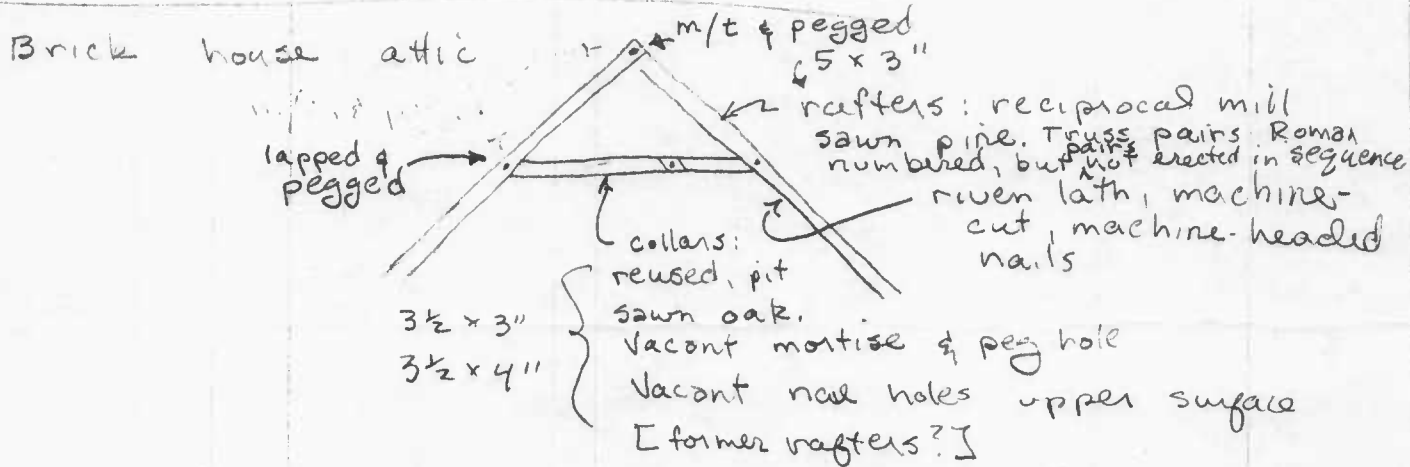 Brick house attic
m/t & pegged
5 x 3"
rafters: reciprocal mill
sawn pine. Truss pairs Roman
numbered, but pairs not erected in sequence
lapped &
pegged
riven lath, machine-
cut, machine-headed
nails
collars:
reused, pit
sawn oak.
3½ x 3"
3½ x 4"
Vacant mortise & peg hole
Vacant nail holes upper surface
[former rafters?]